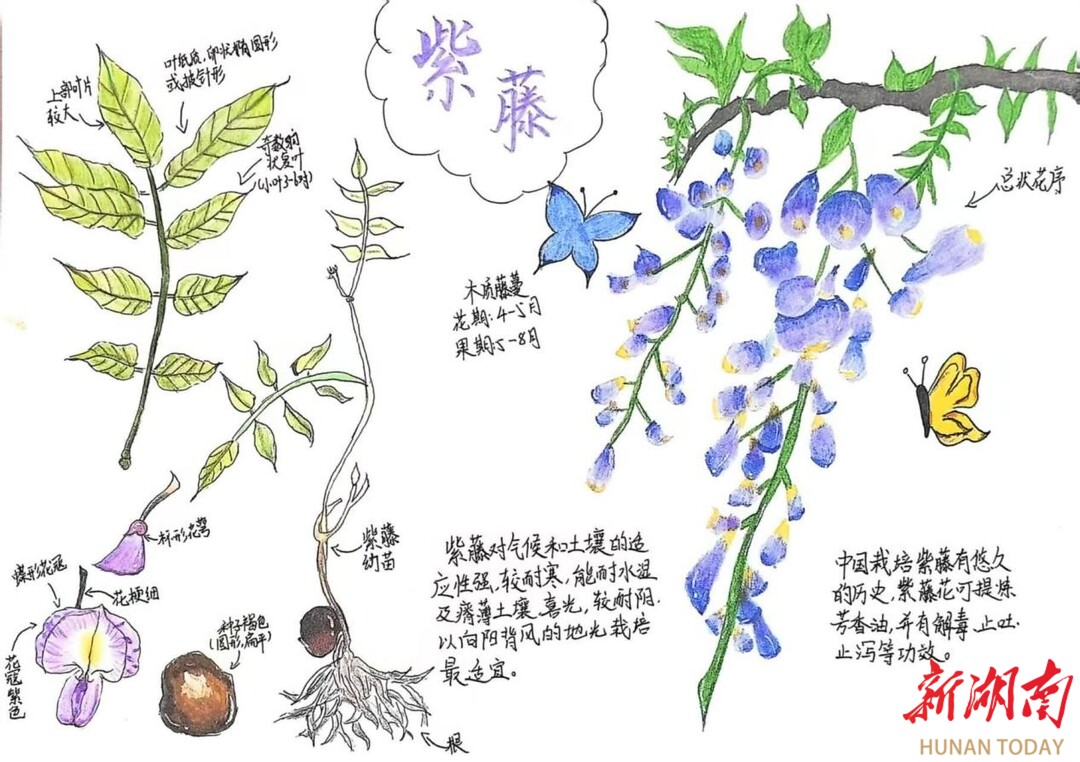 紫
藤
叶纸质,卵状椭圆形
或披针形
上部叶片
较大
奇数羽
状复叶
(小叶3-6对)
总状花序
木质藤蔓
花期:4-5月
果期:5-8月
杯形花萼
蝶形花冠
花梗细
花冠紫色
种子褐色
(圆形,扁平)
紫藤
幼苗
根
紫藤对气候和土壤的适
应性强,较耐寒,能耐水湿
及瘠薄土壤,喜光,较耐阴.
以向阳背风的地光栽培
最适宜。
中国栽培紫藤有悠久
的历史,紫藤花可提炼
芳香油,并有解毒、止吐、
止泻等功效。
新湖南
HUNAN TODAY